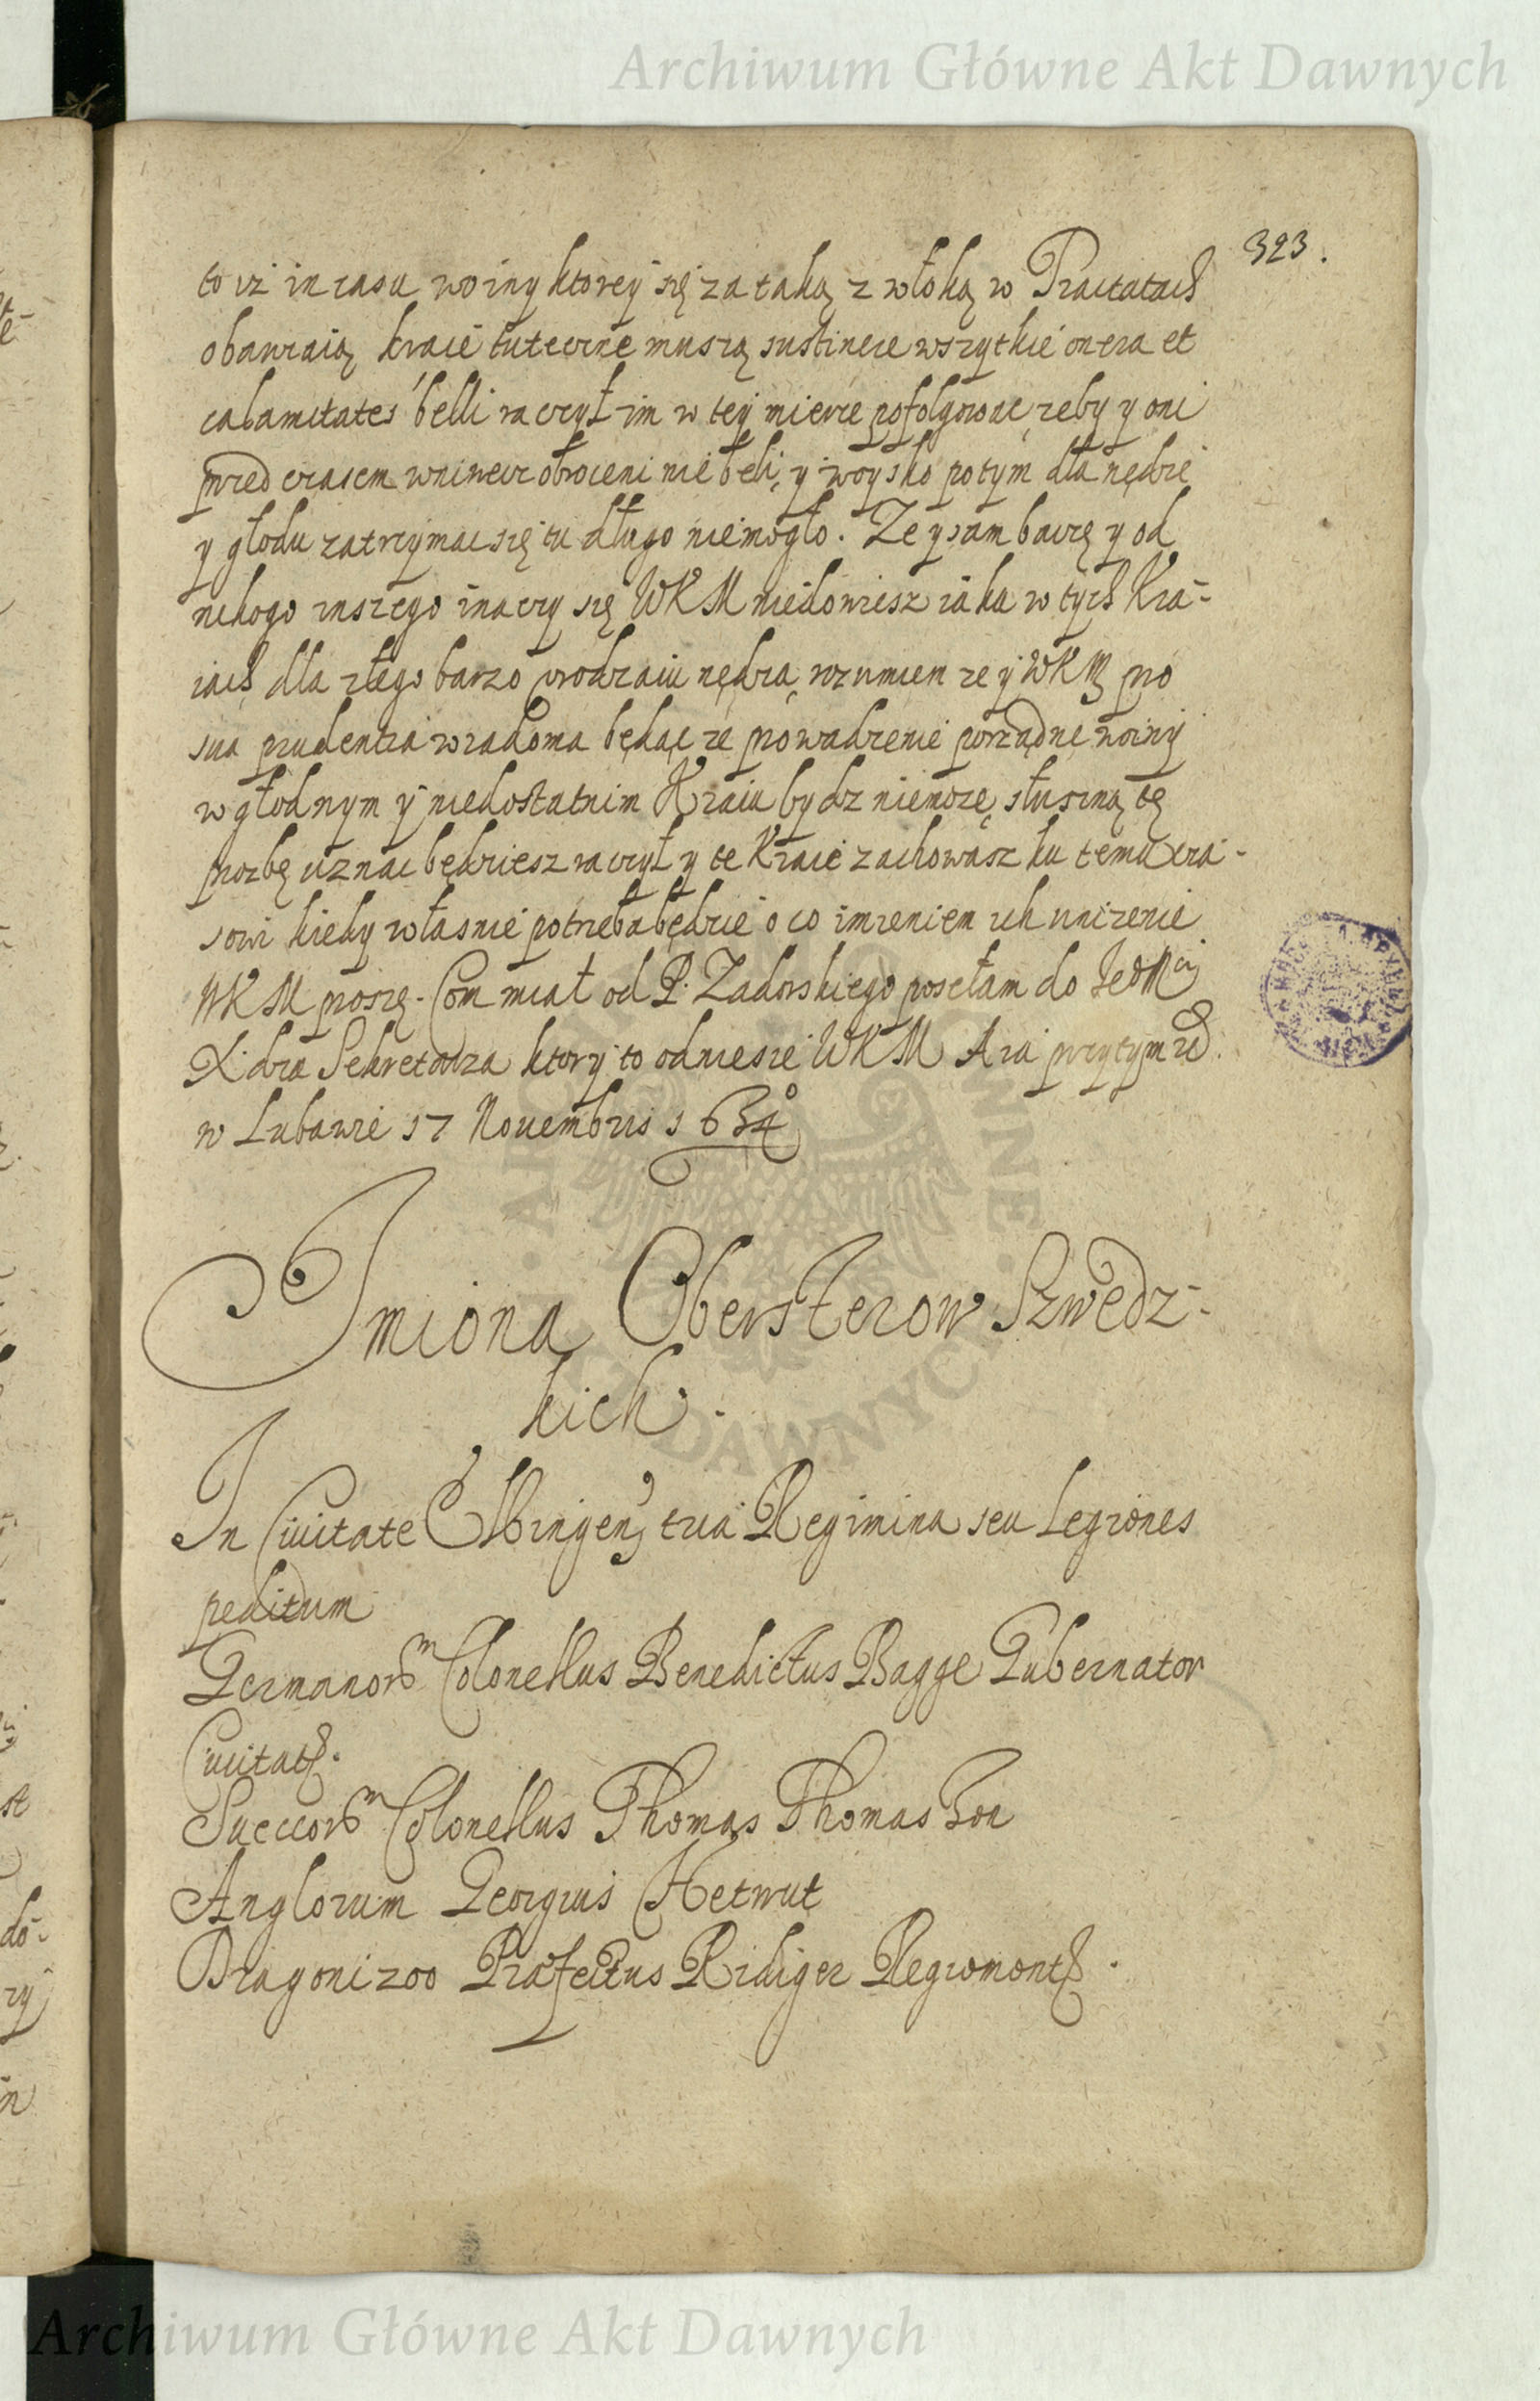 Archiwum Główne Akt Dawnych
323.
to iż in casu woiny ktorey się za taką zwłoką w Tractatach
obawiaią kraie tuteczne muszą sustinere wszytkie onera et
calamitates belli raczył im w tey mierze pofolgować żeby y oni
przed czasem wniwecz obroceni nie beli, y woysko potym dla nędze
y głodu zatrzymac się tu długo niemogło. Ze y sam baczę y od
nikogo inszego inaczy się WKM niedowiesz iaka w tych Kra-
iach dla złego barzo urodzaiu nędza, rozumiem ze y WKM pro
sua prudentia wiadoma będąc ze prowadzenie porządne woiny
w głodnym y niedostatnim Kraiu bydz niemoze, słuszną tę
prozbę uznac będziesz raczył y te Kraie zachowasz ku temu cza-
sowi kiedy własnie potrzeba będzie o co imieniem ich unizenie
WKM proszę. Com miał od P. Zadorskiego posełam do Jeo Mci
X. dza Sekretarza ktory to odniesie WKM A ia przytym etc.
w Lubawie 17 Novembris 1634°
Imiona Obersterow Szwedz-
kich.
In Civitate Elbingens tria Regimina seu Legiones
peditum
Germanorm Colonellus Benedictus Bagge Gubernator
Civitatis.
Sueccorm Colonellus Thomas Thomas Ton
Anglorum Georgius Hetwut
Dragoni 200 Præfectus Ridiger Regiomontis.
Archiwum Główne Akt Dawnych